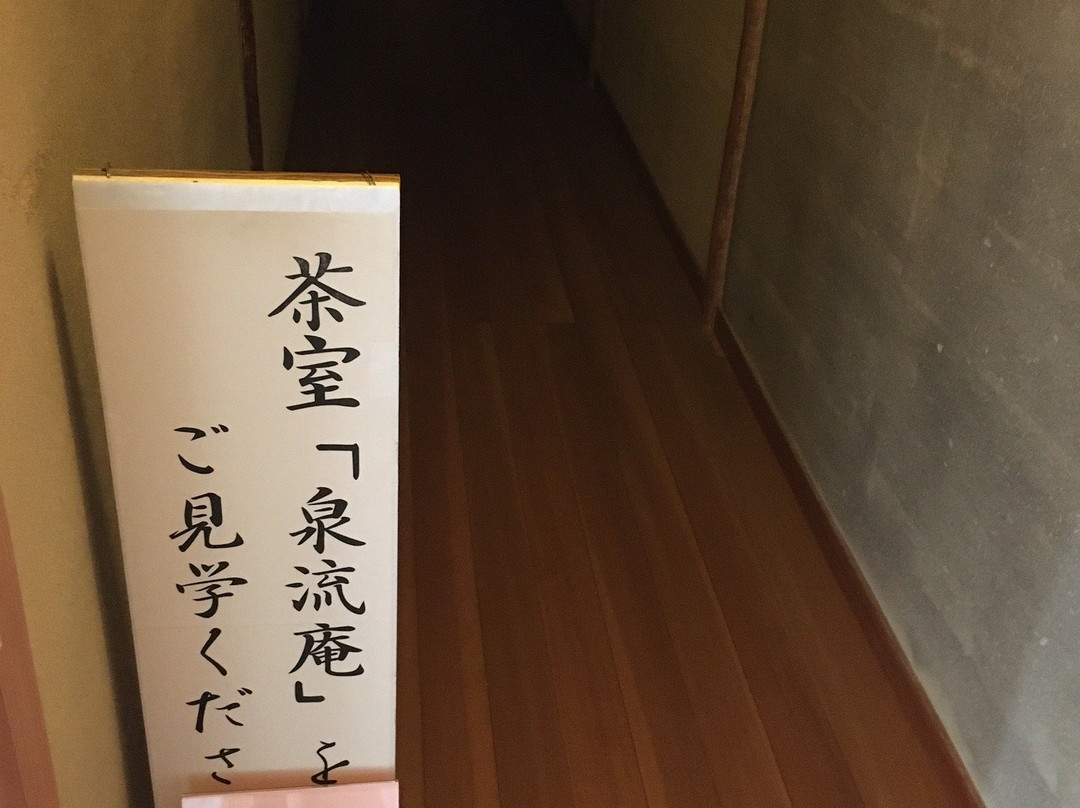 茶室「泉流庵」を
ご見学くださ